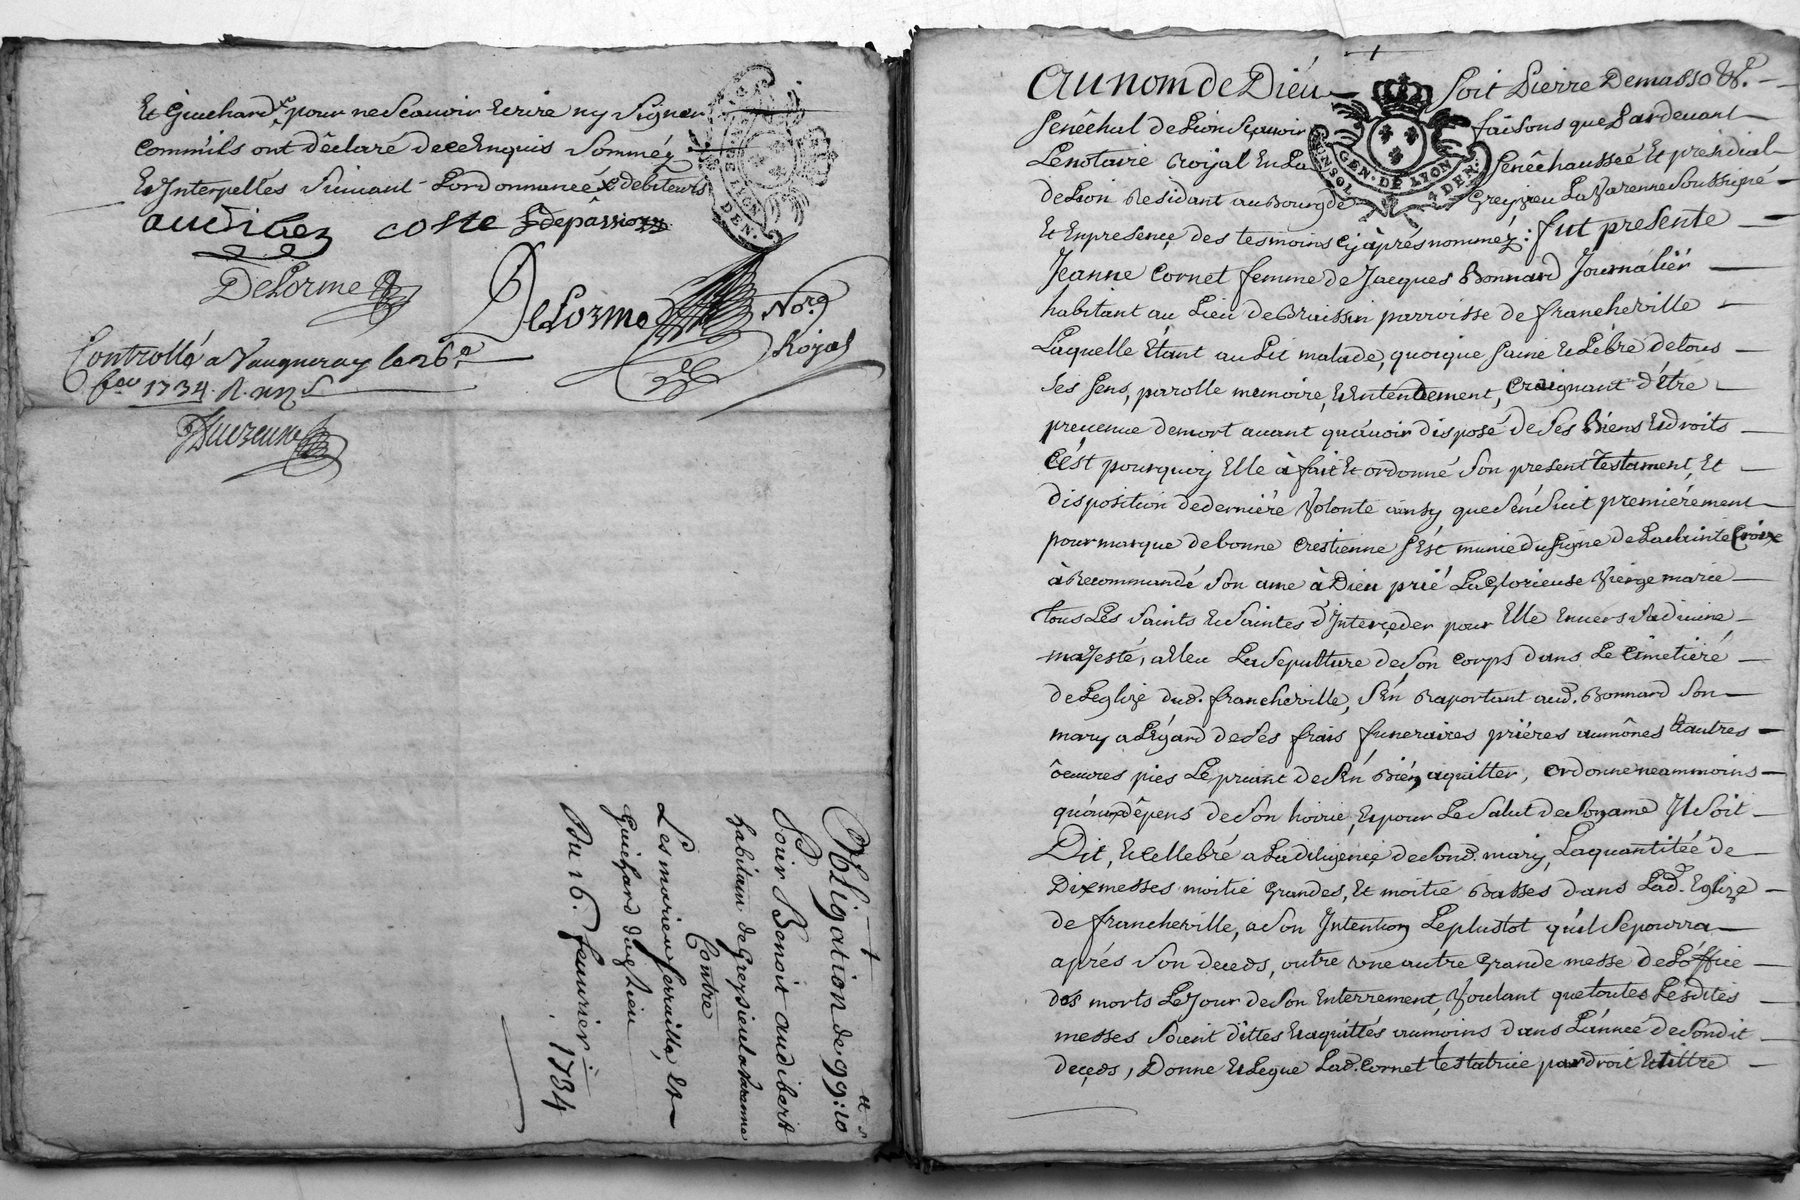 Et Guichard pour ne Scavoir Ecrire ny Signer
Comm'ils ont dêclaré de ce Enquis Sommêz
Et Interpellés Suivant Lordonnanceé debiteurs
audiber coste Depâssio
DeLorme
DeLorme Nore
Royal
Controllé a Vaugneray le 26e
fev 1734. R.
Obligation de 99tt:10s
Pour
Sieur Benoit audibert
habitant de Greysieu la Varenne
Contre
Les mariéz et
Guichard dug lieu
Du 16. feuvrier. 1734
GEN. DE LYON
DEN.
Au nom de Diéu Soit Pierre Demasso &c.
Senêchal de Lion Sçavoir faisons que Pardevant
Le notaire Royal En La Senêchausseé Et presidial
de Lion Residant au Bourg de Greyzieu La Varenne Soussigné
Et En presençe des tesmoins cy àprés nommêz: fut presente
Jeanne Cornet femme de Jacques Bonnard Journaliér
habitant au Lieu de Bruissin parroisse de francheville
Laquelle Étant au Lit malade, quoique Saine Et Lébre de tous
Ses Sens, parolle memoire, Et Entendement, Craignant d'être
prevenue de mort avant qu'avoir disposé de Ses Biens Et droits
C'ést pourquoy Elle à fait Et ordonné Son present testament, Et
disposition de derniére Volonté ainsy que S'én Suit premiérement
pour marque de bonne Crestienne S'ést munie du Signe de La Sainte Croix
à Recommandé Son ame à Dieu prié La Glorieuse Viérge marie
tous Les Saints Et Saintes d'Interçeder pour Elle Envers Sa divine
majesté, a Eleu La Sepulture de Son corps dans Le Cimetiére
de L'eglize dud. francheville, S'én Raportant aud. Bonnard Son
mary a L'égard de Ses frais funeraires priéres aumônes Et autres
ôeuvres pies Le priant de S'én Biéng aquitter, ordonne neammoins
qu'aux dêpens de Son hoirie, Et pour Le Salut de Son ame Il Soit
Dit, Et Cellebré a La diligençe de Sond. mary, La quantiteé de
Dix messes moitié Grandes, Et moitié Basses dans Lad. Eglize
de francheville, a Son Intention Le plustot qu'il Se pourra
aprés Son deceds, outre une autre Grande messe de L'óffice
des morts Le Jour de Son Enterrement, Voulant que toutes Lesdites
messes Soient dittes Et aquittés aumoins dans L'anneé de Sondit
deçeds, Donne Et Legue Lad. Cornet testatrice par droit Et tittre